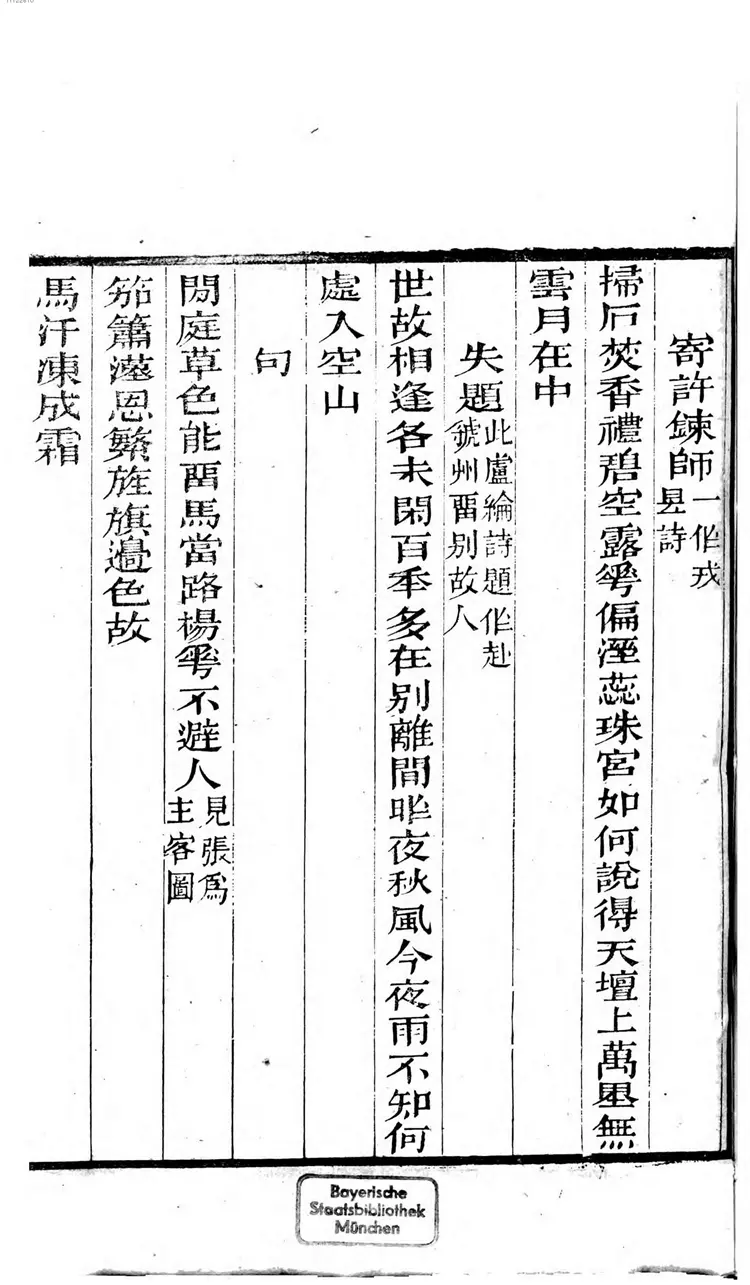 寄許鍊師一作戎昱詩
掃石焚香禮碧空露華偏溼蕊珠宮如何說得天壇上萬里無
雲月在中
失題此盧綸詩題作赴虢州畱別故人
世故相逢各未閑百年多在別離間昨夜秋風今夜雨不知何
處入空山
句
閒庭草色能畱馬當路楊華不避人見張爲主客圖
笳簫溼恩繁旌旗邊色故
馬汗凍成霜
Bayerische
Staatsbibliothek
München